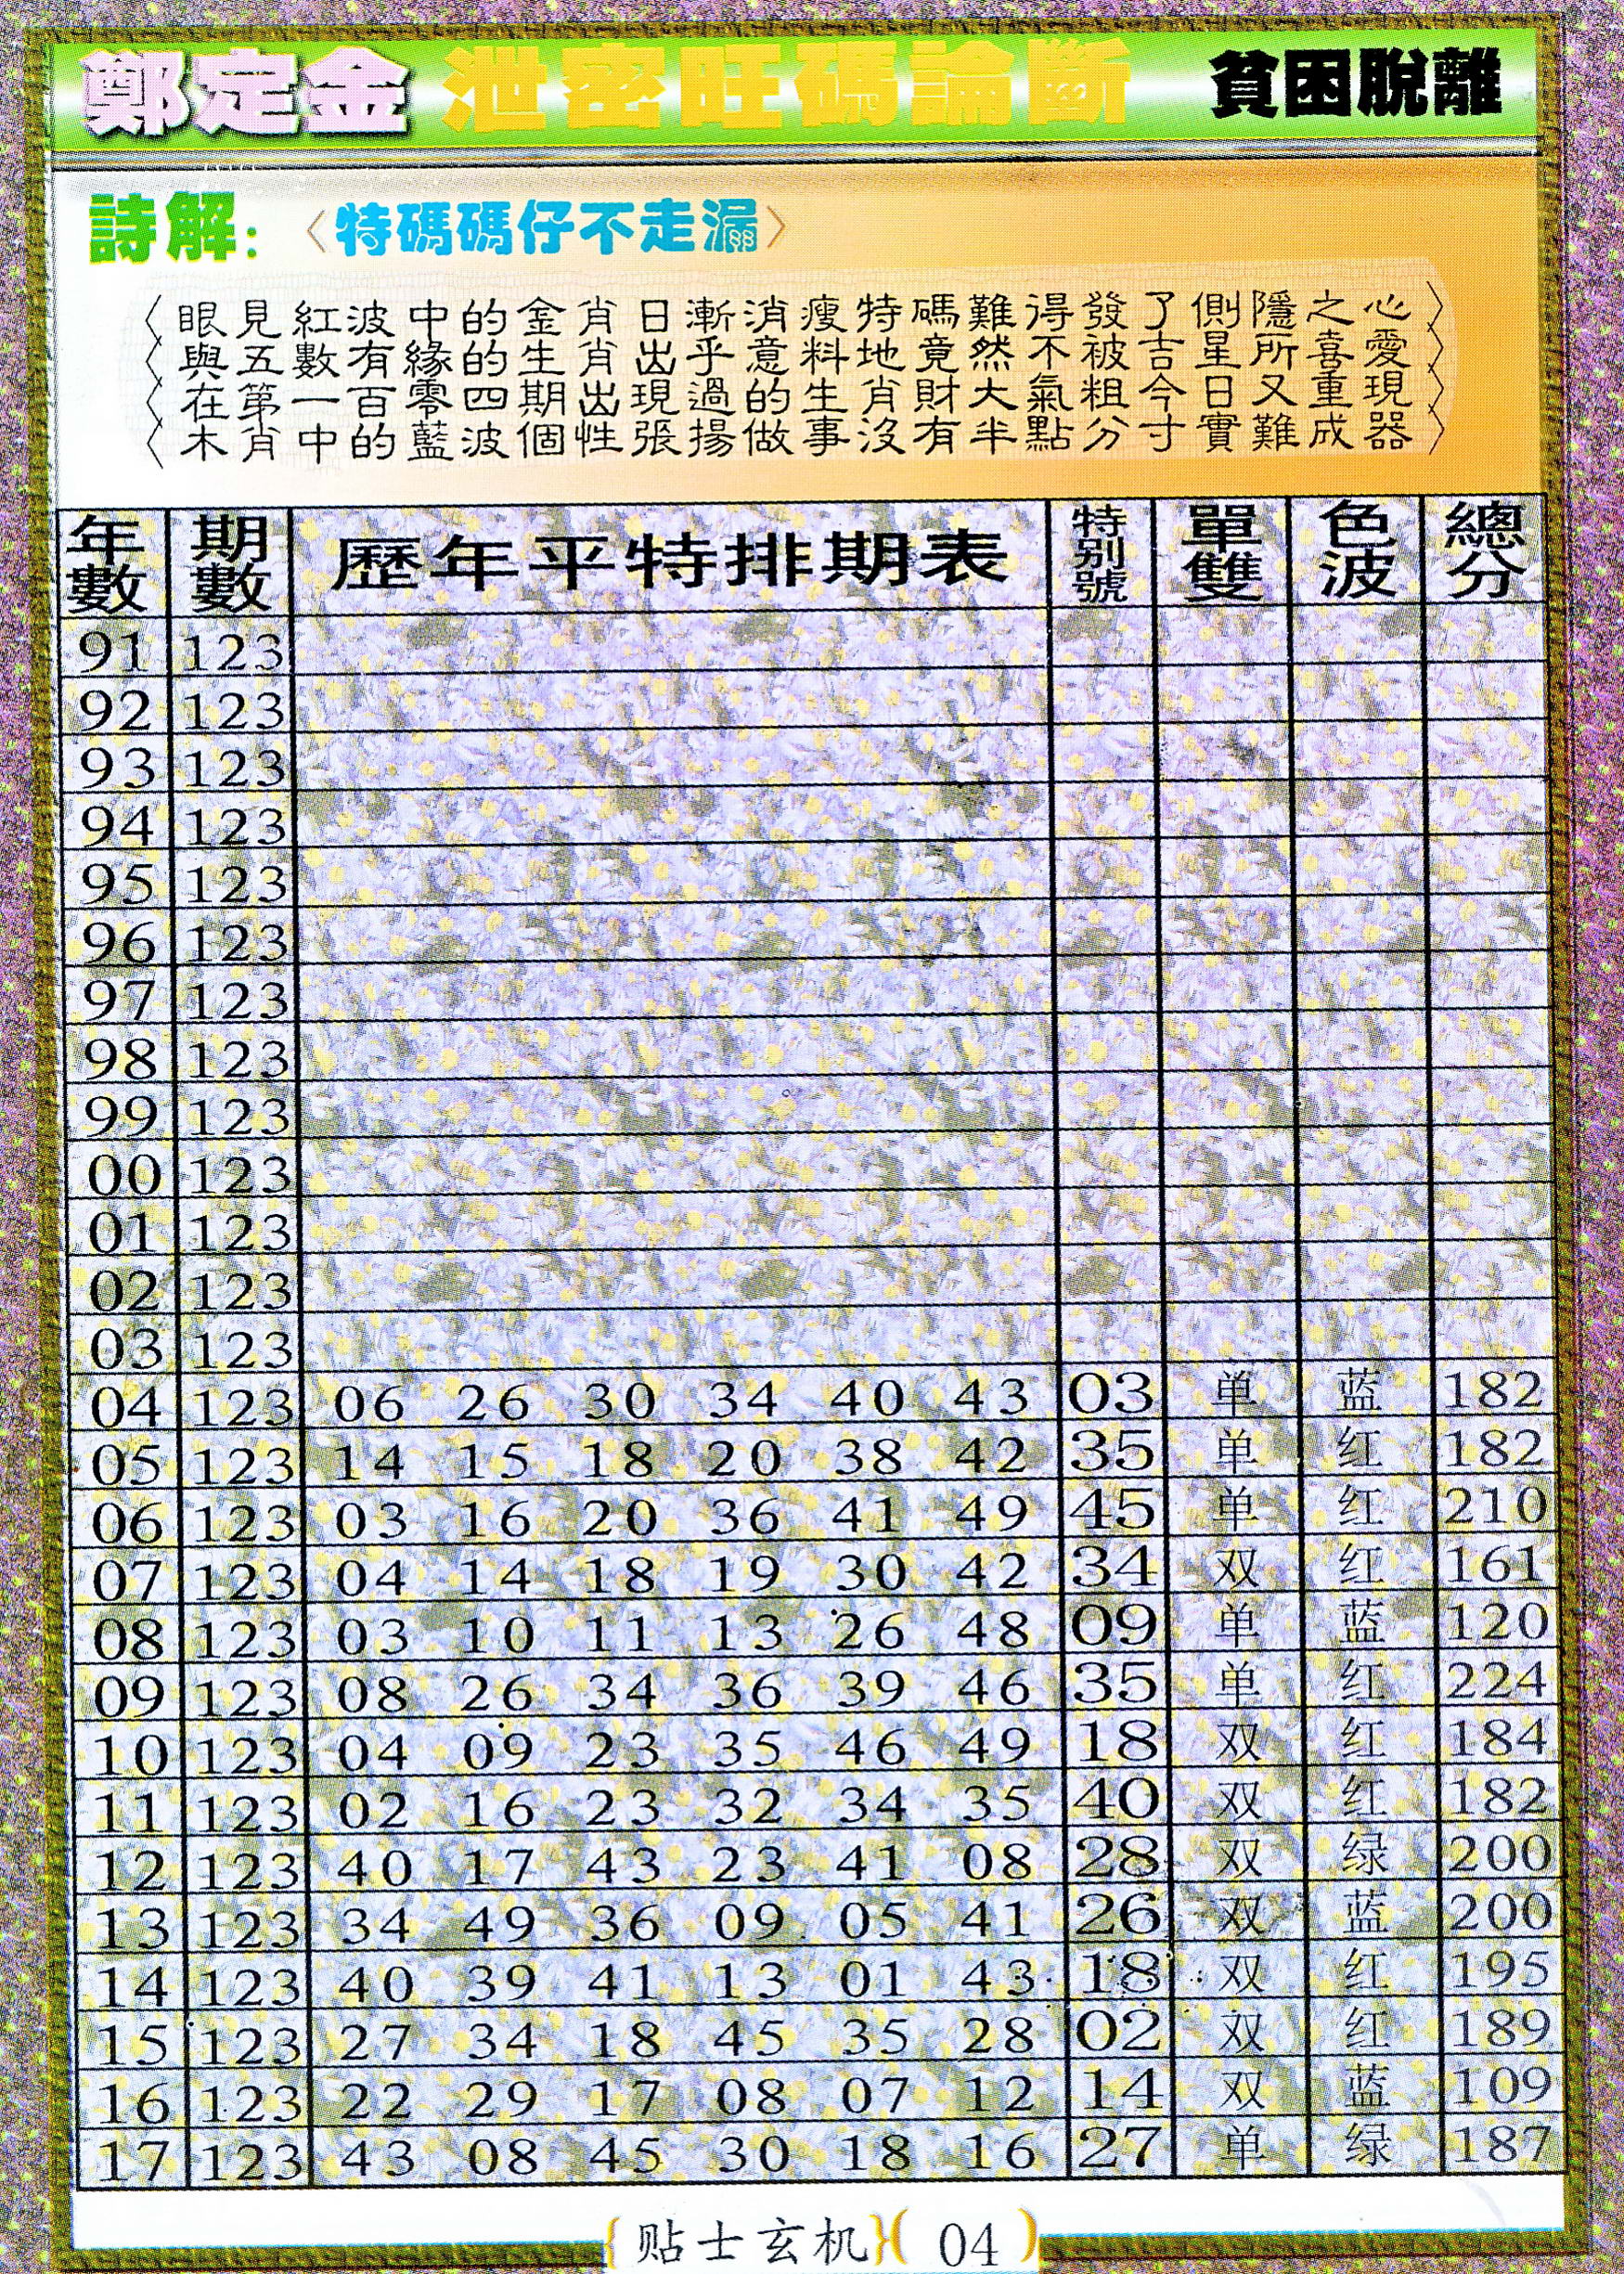 鄭定金 泄密旺碼論斷 貧困脫離
詩解:〈特碼碼仔不走漏〉
〈眼見紅波中的金肖日漸消瘦特碼難得發了側隱之心〉
〈與五數有緣的生肖出乎意料地竟然不被吉星所喜愛〉
〈在第一百零四期出現過的生肖財大氣粗今日又重現〉
〈木肖中的藍波個性張揚做事沒有半點分寸實難成器〉
年數 期數 歷年平特排期表 特别號 單雙 色波 總分
91 123
92 123
93 123
94 123
95 123
96 123
97 123
98 123
99 123
00 123
01 123
02 123
03 123
04 123 06 26 30 34 40 43 03 单 蓝 182
05 123 14 15 18 20 38 42 35 单 红 182
06 123 03 16 20 36 41 49 45 单 红 210
07 123 04 14 18 19 30 42 34 双 红 161
08 123 03 10 11 13 26 48 09 单 蓝 120
09 123 08 26 34 36 39 46 35 单 红 224
10 123 04 09 23 35 46 49 18 双 红 184
11 123 02 16 23 32 34 35 40 双 红 182
12 123 40 17 43 23 41 08 28 双 绿 200
13 123 34 49 36 09 05 41 26 双 蓝 200
14 123 40 39 41 13 01 43 18 双 红 195
15 123 27 34 18 45 35 28 02 双 红 189
16 123 22 29 17 08 07 12 14 双 蓝 109
17 123 43 08 45 30 18 16 27 单 绿 187
{贴士玄机}(04)